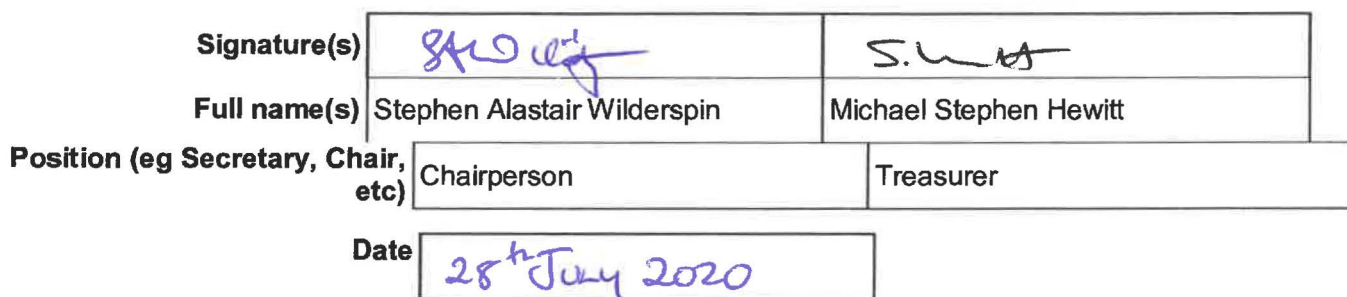 Signature(s)
Full name(s) Stephen Alastair Wilderspin Michael Stephen Hewitt
Position (eg Secretary, Chair,
etc) Chairperson Treasurer
Date 28th July 2020